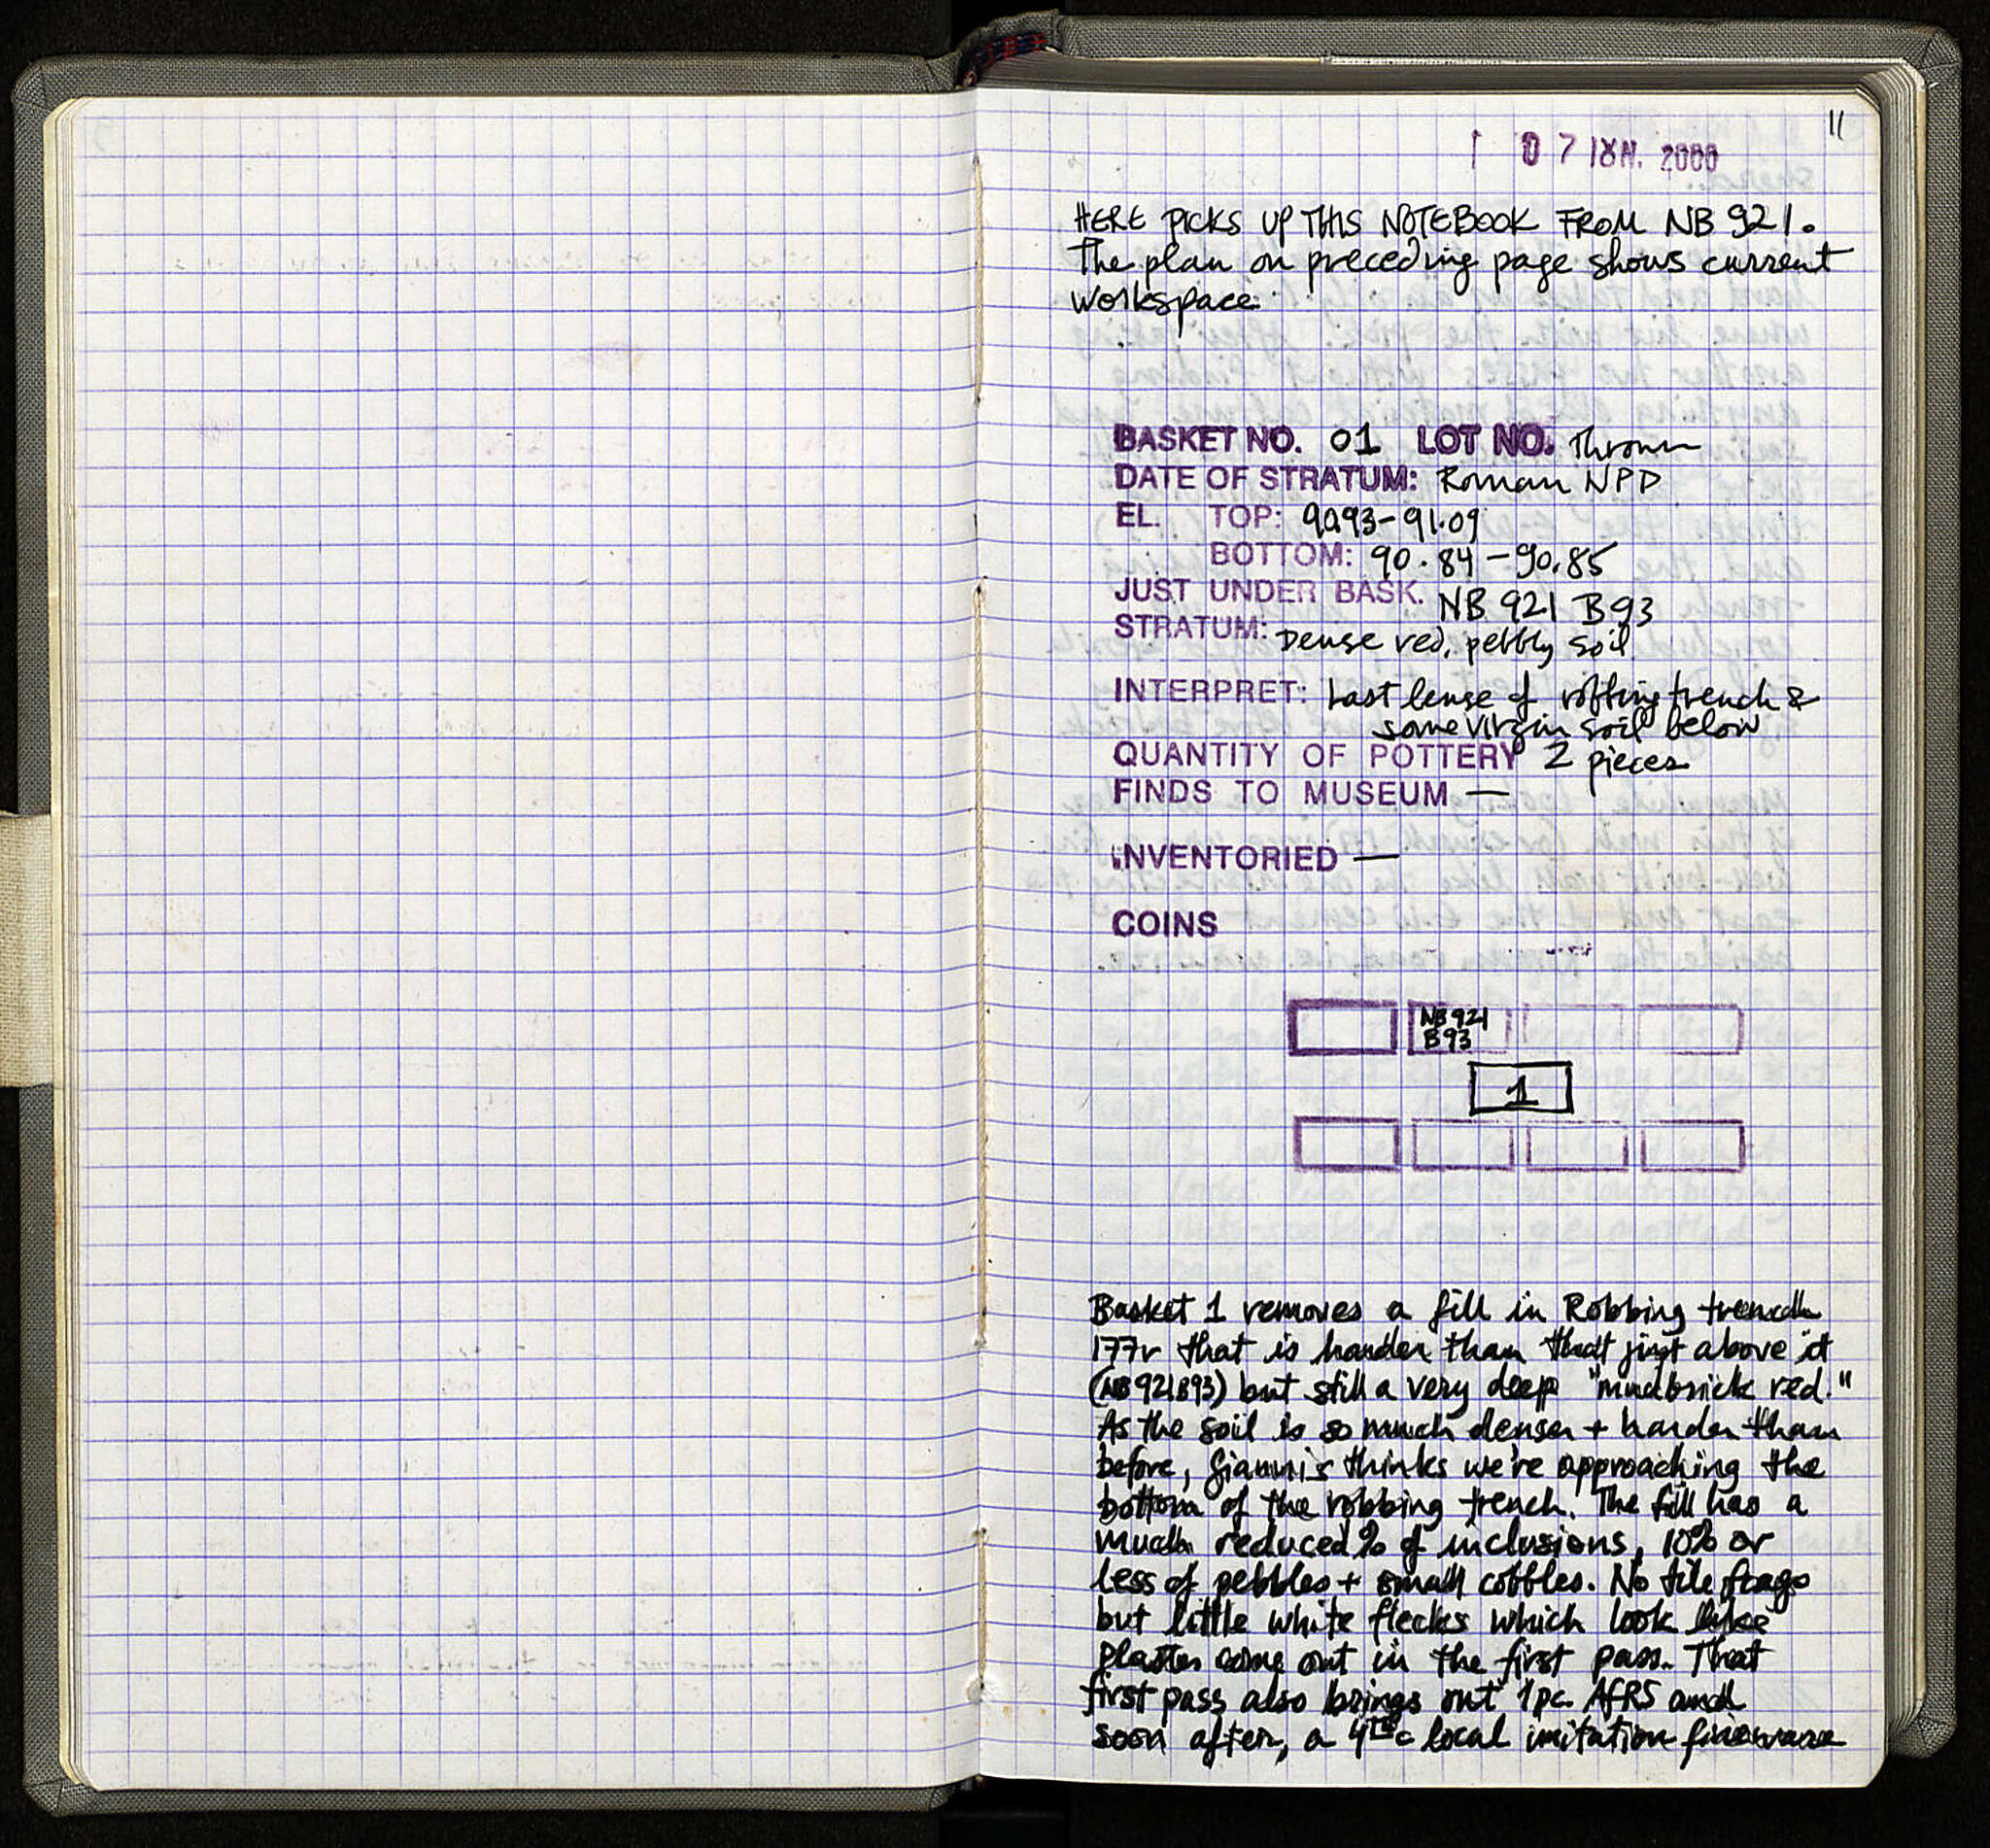 11
07 ΙΟΥΝ. 2000
HERE PICKS UP THIS NOTEBOOK FROM NB 921.
The plan on preceding page shows current
workspace.
BASKET NO. 01 LOT NO. Thrown
DATE OF STRATUM: Roman NPD
EL. TOP: 90.93-91.09
BOTTOM: 90.84-90.85
JUST UNDER BASK. NB 921 B93
STRATUM: Dense red, pebbly soil
INTERPRET: Last lense of robbing trench &
some virgin soil below
QUANTITY OF POTTERY 2 pieces
FINDS TO MUSEUM —
INVENTORIED —
COINS
NB 921
B93
1
Basket 1 removes a fill in Robbing trench
177r that is harder than that just above it
(NB 921B93) but still a very deep "mudbrick red."
As the soil is so much denser + harder than
before, Giannis thinks we're approaching the
bottom of the robbing trench. The fill has a
much reduced % of inclusions, 10% or
less of pebbles + small cobbles. No tile frags
but little white flecks which look like
plaster come out in the first pass. That
first pass also brings out 1pc. AfRS and
soon after, a 4th c local imitation fineware